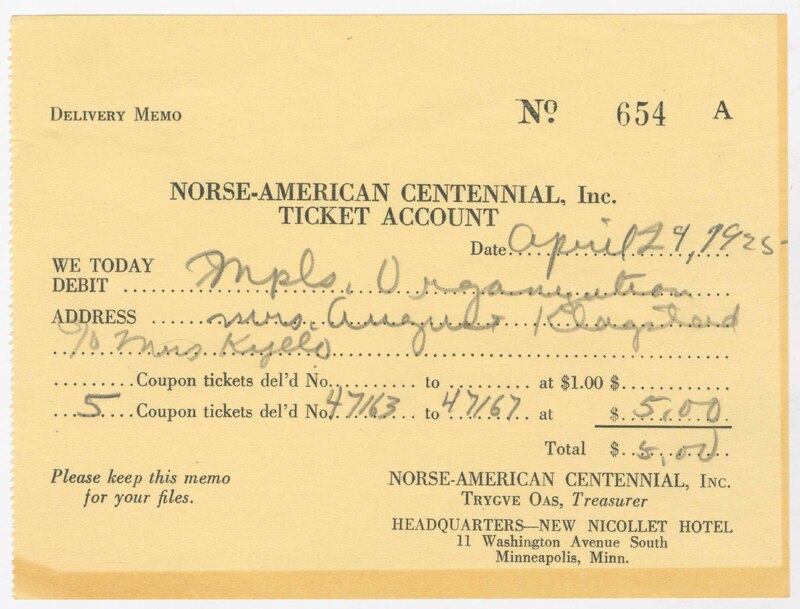 DELIVERY MEMO
No. 654 A
NORSE-AMERICAN CENTENNIAL, Inc.
TICKET ACCOUNT
Date April 29, 1925
WE TODAY
DEBIT Mpls. Organization
ADDRESS Mrs. August Klagstad
c/o Mrs Kyello
Coupon tickets del'd No. to at $1.00 $
5 Coupon tickets del'd No. 47163 to 47167 at $ 5.00
Total $ 5.00
Please keep this memo
for your files.
NORSE-AMERICAN CENTENNIAL, INC.
TRYGVE OAS, Treasurer
HEADQUARTERS—NEW NICOLLET HOTEL
11 Washington Avenue South
Minneapolis, Minn.